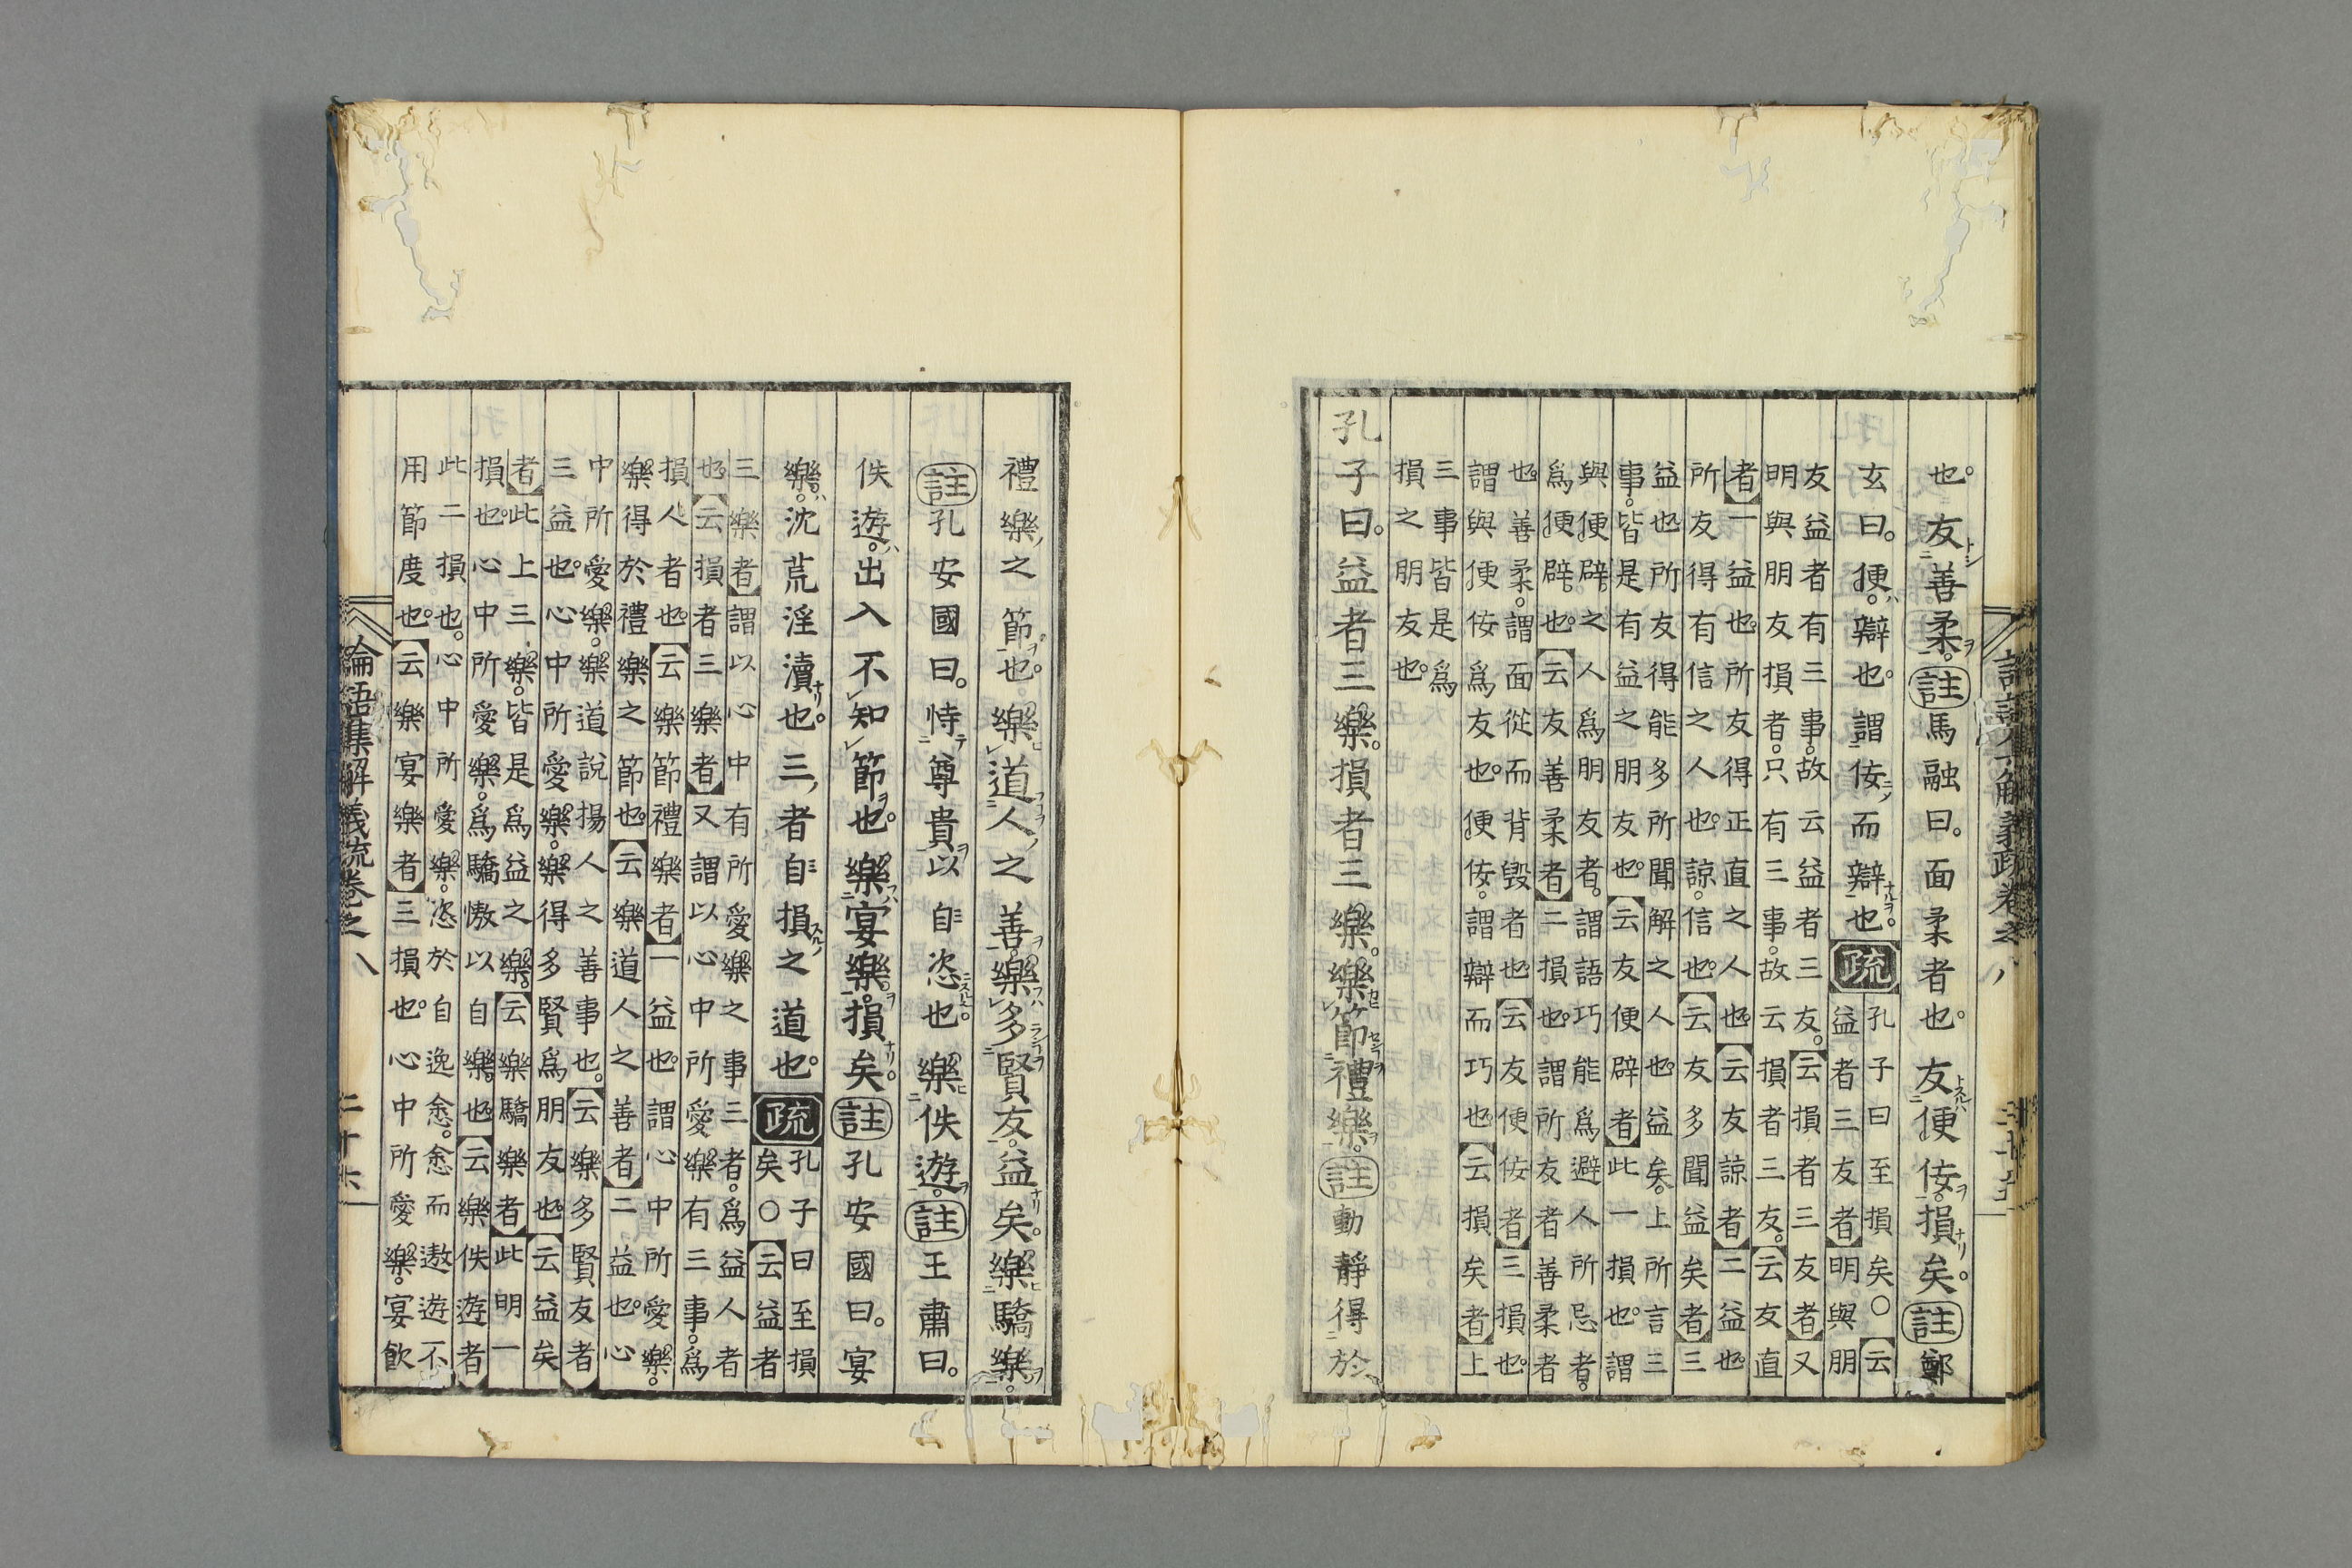 也。友善柔。註馬融曰。面柔者也。友便佞。損矣。註鄭
玄曰。便。辯也。謂佞而辯也。疏
孔子曰至損矣○云
益者三友者明與朋
友益者有三事。故云益者三友。云損者三友者又
明與朋友損者。只有三事。故云損者三友。云友直
者一益也。所友得正直之人也云友諒者二益也
所友得有信之人也。諒。信也。云友多聞益矣者三
益也所友得能多所聞解之人也益矣。上所言三
事。皆是有益之朋友也。云友便辟者此一損也。謂
與便辟。之人爲朋友者。謂語巧能爲避人所忌者。
爲便辟。也。云友善柔者二損也。謂所友者善柔者
也。善柔。謂面從而背毀者也云友便佞者三損也。
謂與便佞爲友也。便佞。謂辯而巧也云損矣者上
三事皆是爲
損之朋友也。
孔子曰。益者三樂。損者三樂。樂節禮樂。註動靜得於
禮樂之節也。樂道人之善。樂多賢友。益矣。樂驕樂。
註孔安國曰。恃尊貴以自恣也。樂佚遊。註王肅曰。
佚遊。出入不知節也。樂宴樂。損矣。註孔安國曰。宴
樂。沈荒淫瀆也。三者自損之道也。疏
孔子曰至損
矣○云益者
三樂者謂以心中有所愛樂之事三者。爲益人者
也。云損者三樂者又謂以心中所愛樂有三事。爲
損人者也云樂節禮樂者一益也。謂心中所愛樂。
樂得於禮樂之節也。云樂道人之善者二益也。心
中所愛樂。樂道說揚人之善事也。云樂多賢友者
三益也。心中所愛樂。樂得多賢爲朋友也。云益矣
者此上三樂。皆是爲益之樂。云樂驕樂者此明一
損也。心中所愛樂。爲驕慠以自樂也云樂佚遊者
此二損也。心中所愛樂。恣於自逸悆。悆而遨遊不
用節度也。云樂宴樂者三損也。心中所愛樂。宴飲
論語集解義疏卷之八 二十六